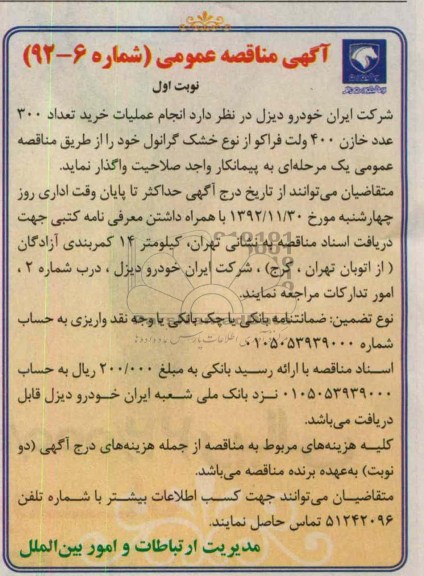 آگهی مناقصه عمومی (شماره ۶-۹۲)
نوبت اول
شرکت ایران خودرو دیزل در نظر دارد انجام عملیات خرید تعداد ۳۰۰
عدد خازن ۴۰۰ ولت فراکو از نوع خشک گرانول خود را از طریق مناقصه
عمومی یک مرحله‌ای به پیمانکار واجد صلاحیت واگذار نماید.
متقاضیان می‌توانند از تاریخ درج آگهی حداکثر تا پایان وقت اداری روز
چهارشنبه مورخ ۱۳۹۲/۱۱/۳۰ با همراه داشتن معرفی نامه کتبی جهت
دریافت اسناد مناقصه به نشانی تهران، کیلومتر ۱۴ کمربندی آزادگان
( از اتوبان تهران ، کرج) ، شرکت ایران خودرو دیزل ، درب شماره ۲ ،
امور تدارکات مراجعه نمایند.
نوع تضمین: ضمانتنامه بانکی یا چک بانکی یا وجه نقد واریزی به حساب
شماره ۰۱۰۵۰۵۳۹۳۹۰۰۰
اسـناد مناقصه با ارائه رسـید بانکی به مبلغ ۲۰۰/۰۰۰ ریال به حساب
۰۱۰۵۰۵۳۹۳۹۰۰۰ نـزد بانک ملی شـعبه ایران خـودرو دیزل قابل
دریافت می‌باشد.
کلیـه هزینه‌های مربوط به مناقصه از جمله هزینه‌های درج آگهی (دو
نوبت) به‌عهده برنده مناقصه می‌باشد.
متقاضیـان می‌توانند جهت کسـب اطلاعات بیشـتر با شـماره تلفن
۵۱۲۴۲۰۹۶ تماس حاصل نمایند.
مدیریت ارتباطات و امور بین‌الملل